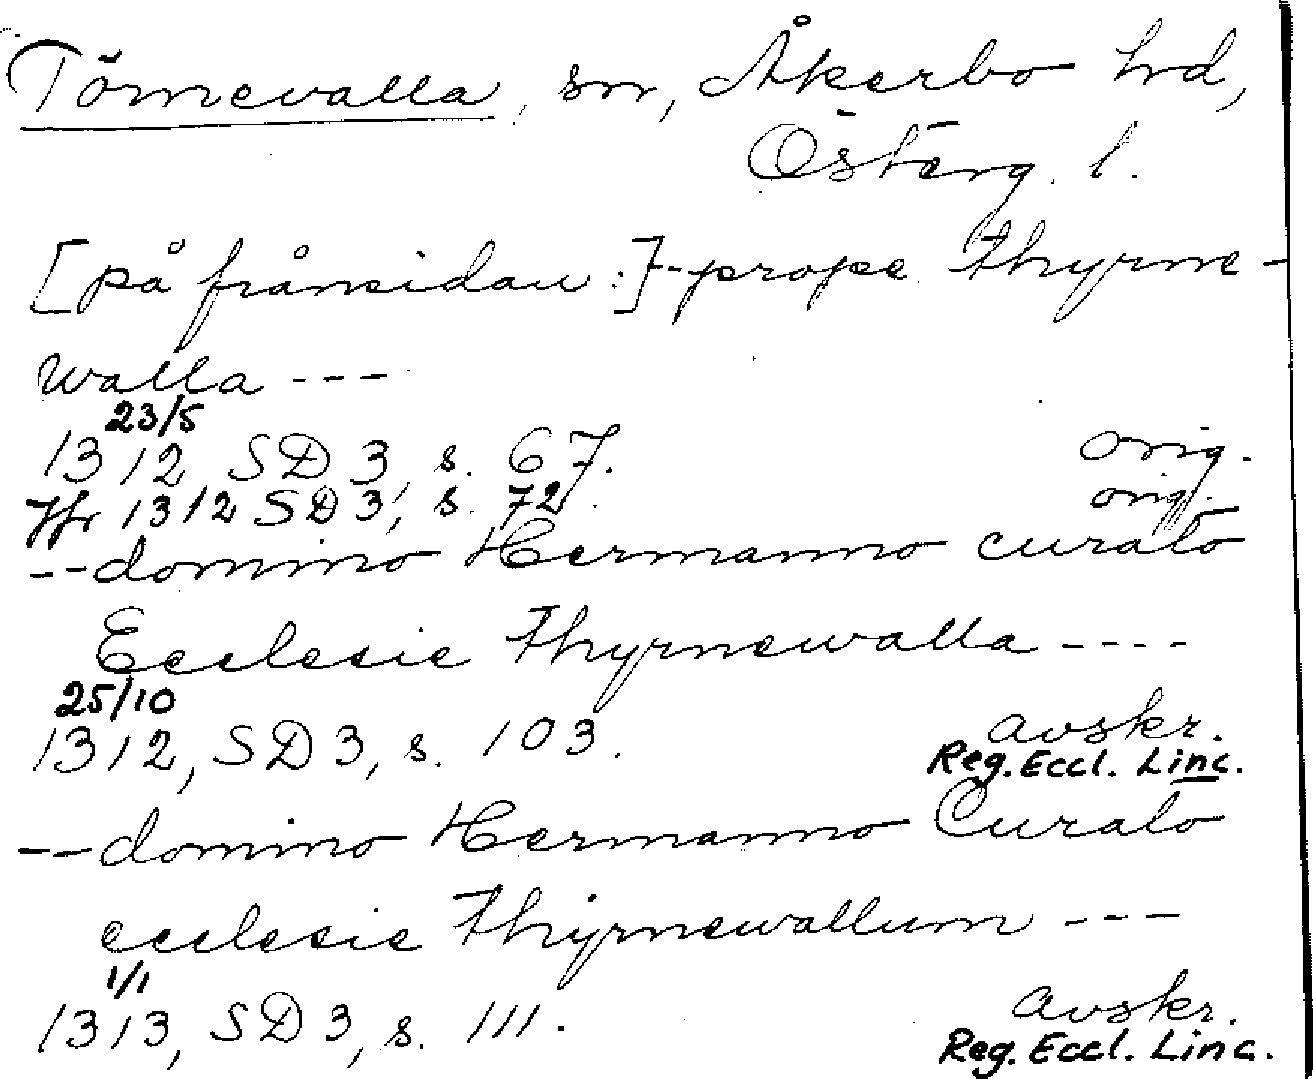 Törnevalla, sn, Åkerbo hd,
Österg. l.
[på frånsidan:]--prope Thyrne-
walla ---
23/5
1312 SD 3, s. 67. orig.
Jfr 1312 SD 3, s. 72. orig.
--domino Hermanno curato
Ecclesie Thyrnewalla ----
25/10
1312, SD 3, s. 103. avskr.
Reg. Eccl. Linc.
--domino Hermanno Curato
ecclesie Thyrnewallum ---
1/1
1313, SD 3, s. 111. avskr.
Reg. Eccl. Linc.